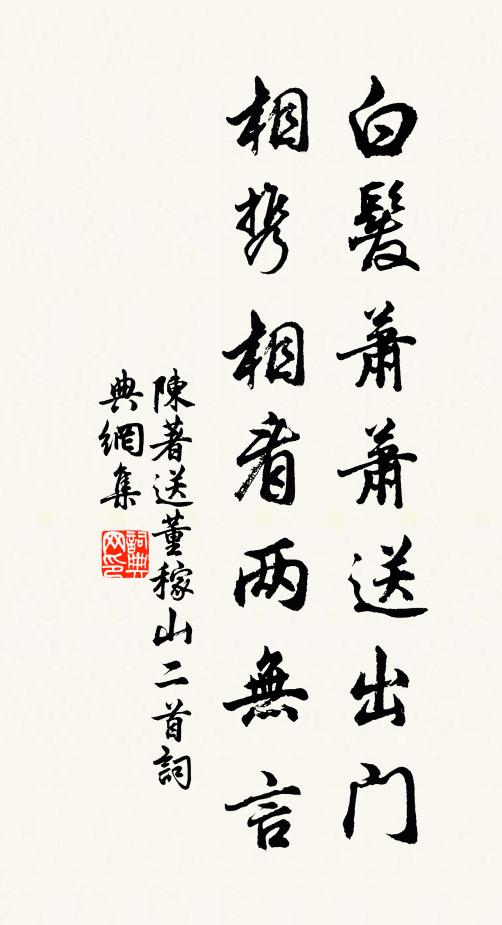 白髮蕭蕭送出門
相携相看兩無言
陳著送董稼山二首詞
典網集
詞典
网印